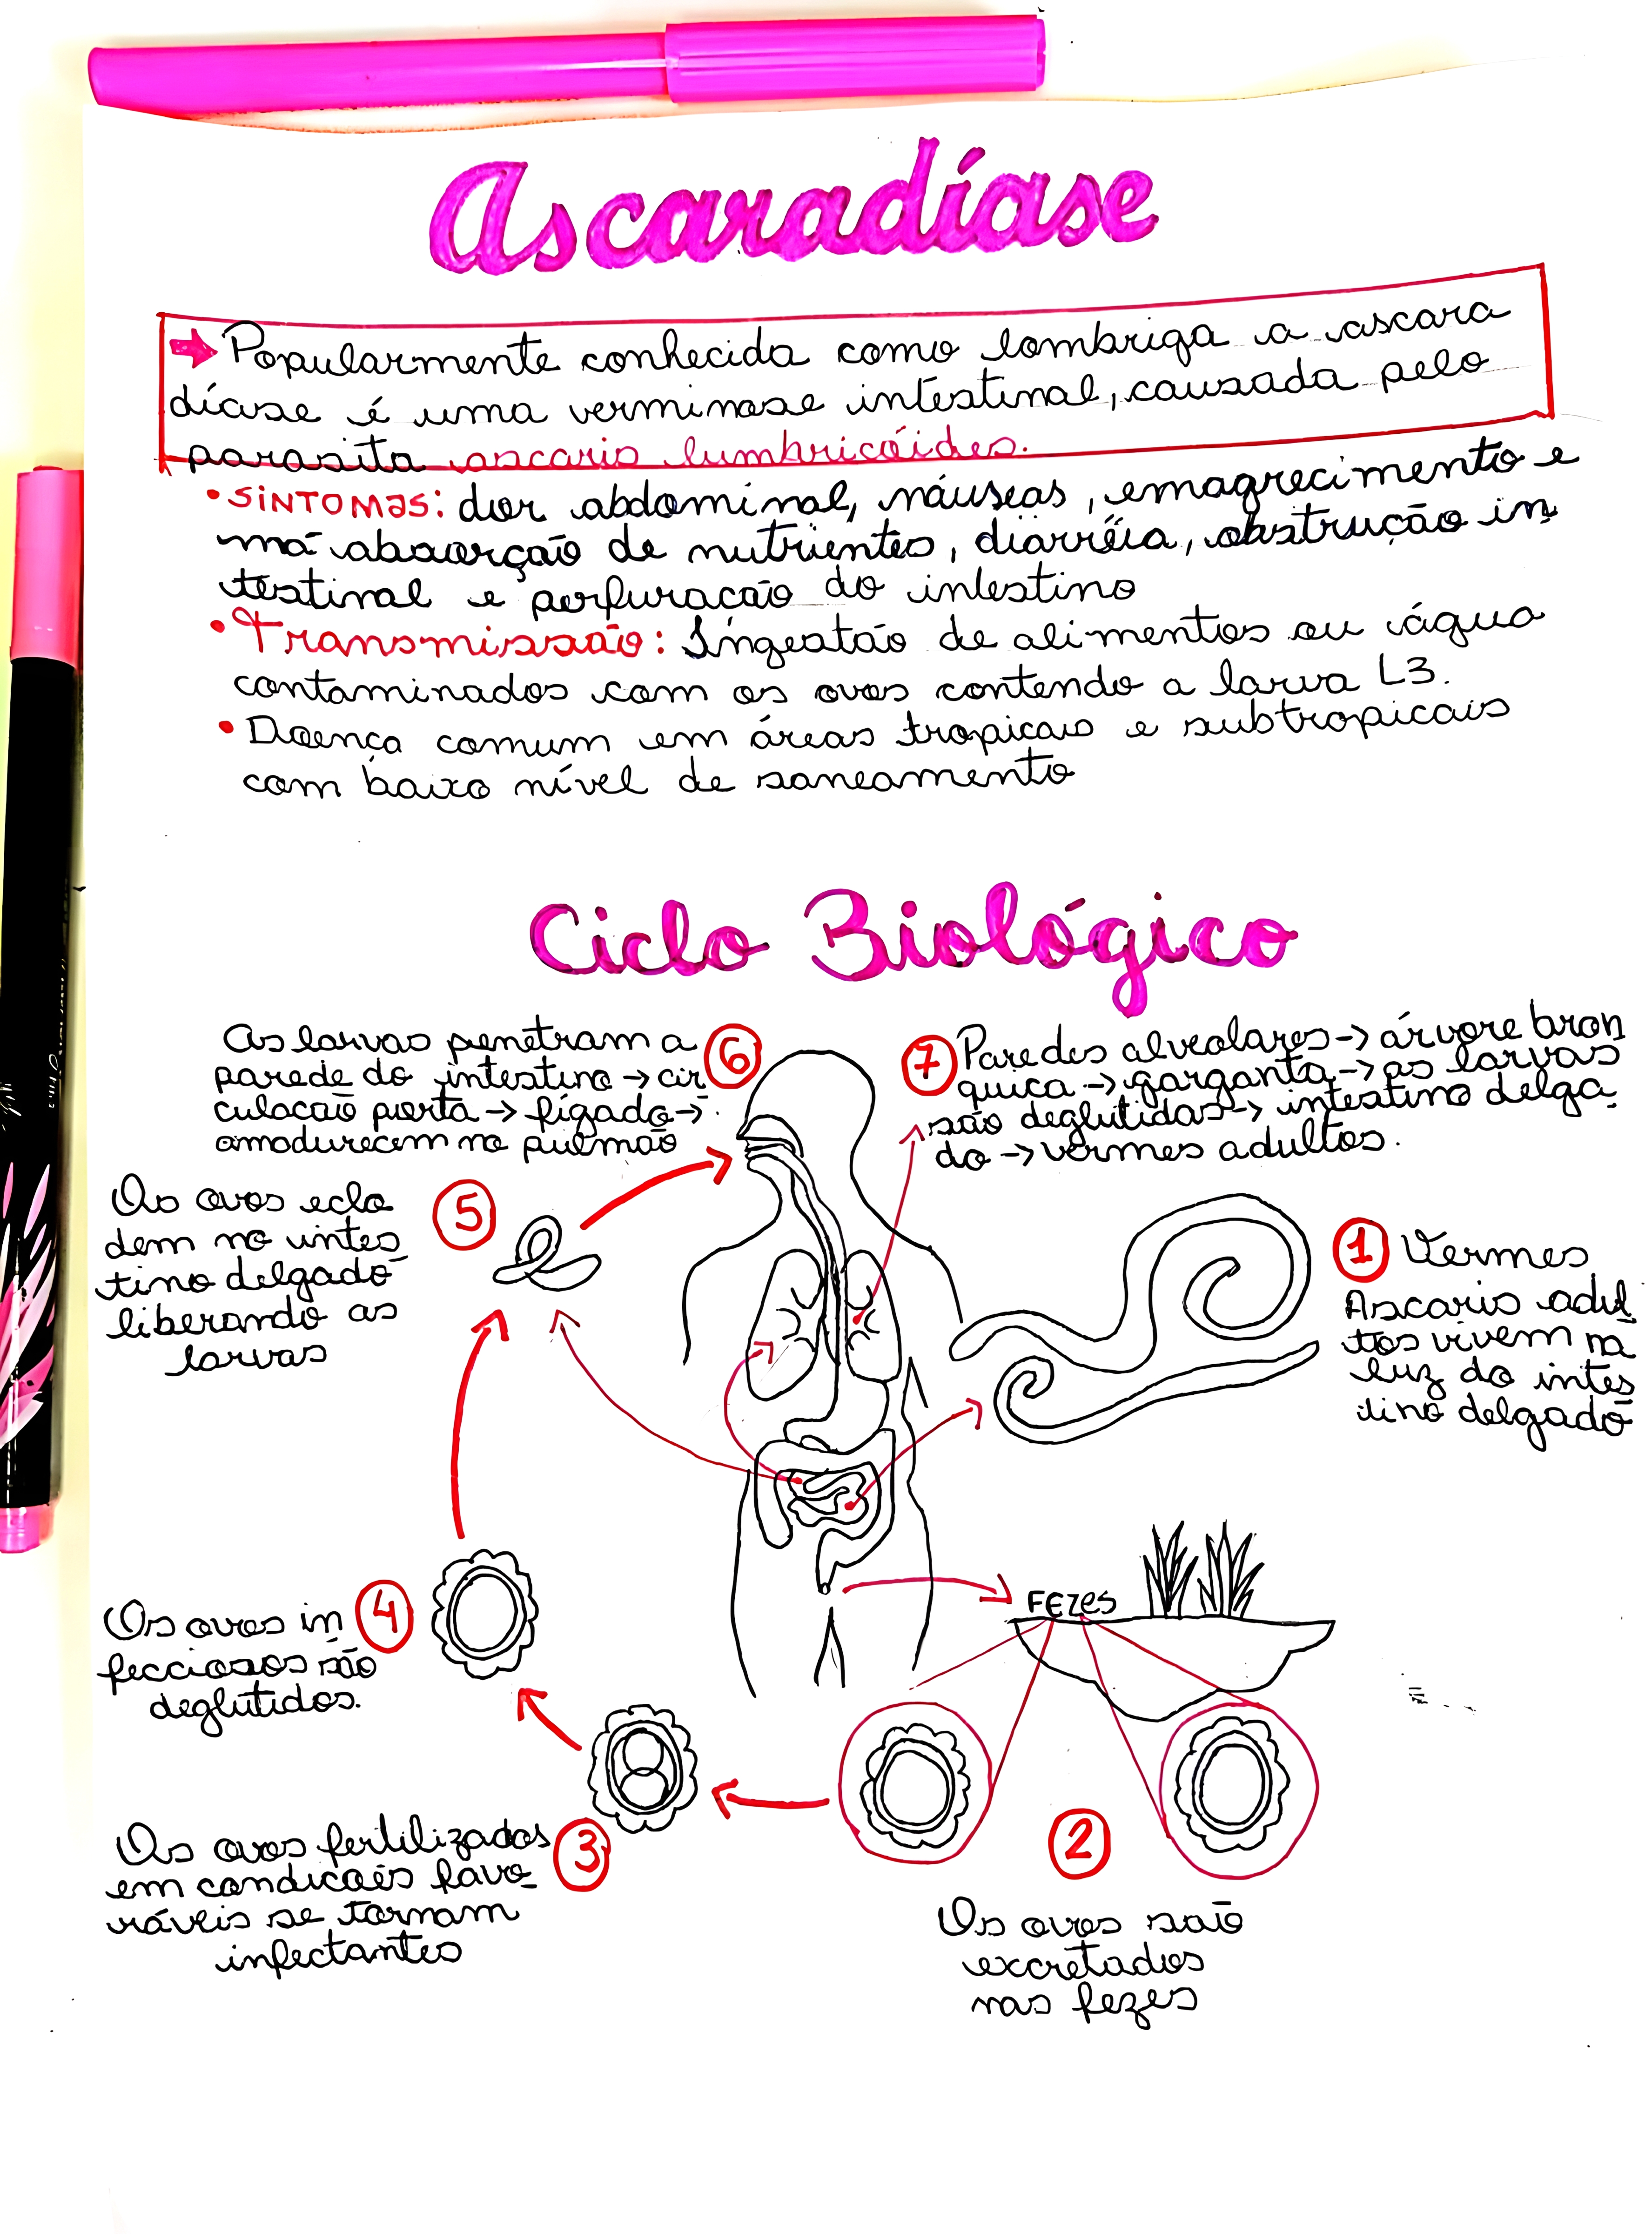 Ascaradíase
➡ Popularmente conhecida como lombriga a ascara
díase é uma verminose intestinal, causada pelo
parasita ascaris lumbricóides.
• SINTOMAS: dor abdominal, náuseas, emagrecimento e
má absorção de nutrientes, diarréia, obstrução in
testinal e perfuracão do intestino
• Transmissão: Ingestão de alimentos ou água
contaminados com os ovos contendo a larva L3.
• Doença comum em áreas tropicais e subtropicais
com baixo nível de saneamento
Ciclo Biológico
As larvas penetram a
parede do intestino → cir
culacão porta → fígado →
amadurecem no pulmão
6
7 Paredes alveolares → árvore bron
quica → garganta → as larvas
são deglutidas → intestino delga
do → vermes adultos.
Os ovos eclo
dem no intes
tino delgado
liberando as
larvas
5
1 Vermes
Ascaris adul
tos vivem na
luz do intes
tino delgado
FEZES
Os ovos in
fecciosos são
deglutidos.
4
Os ovos fertilizados
em condicões favo
ráveis se tornam
infectantes
3
2
Os ovos são
excretados
nas fezes